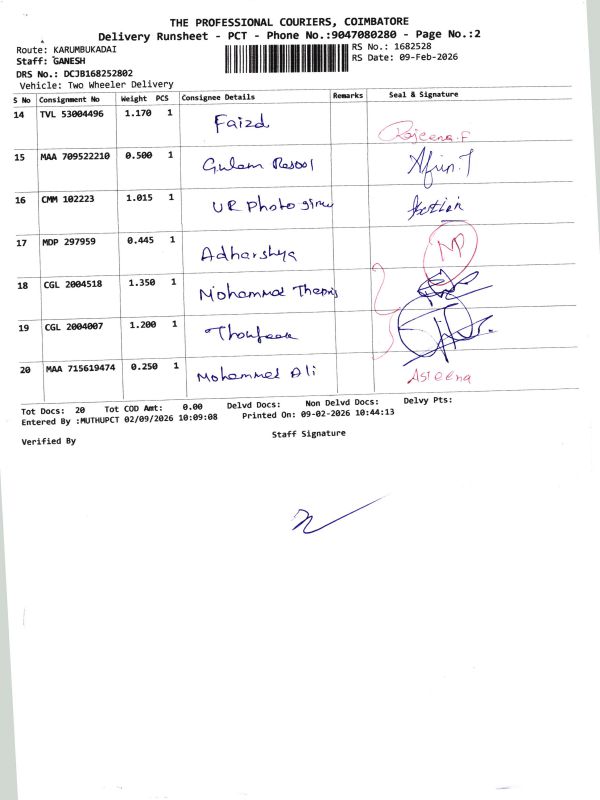 THE PROFESSIONAL COURIERS, COIMBATORE
Delivery Runsheet - PCT - Phone No.:9047080280 - Page No.:2
Route: KARUMBUKADAI RS No.: 1682528
Staff: GANESH RS Date: 09-Feb-2026
DRS No.: DCJB168252802
Vehicle: Two Wheeler Delivery
S No Consignment No Weight PCS Consignee Details Remarks Seal & Signature
14 TVL 53004496 1.170 1 Faizd Rajeena.F
15 MAA 709522210 0.500 1 Gulam Rasool Afrin.J
16 CMM 102223 1.015 1 UR Photo
17 MDP 297959 0.445 1 Adharshya NP
18 CGL 2004518 1.350 1 Mohammed
19 CGL 2004007 1.200 1
20 MAA 715619474 0.250 1 Mohammed Ali
Tot Docs: 20 Tot COD Amt: 0.00 Delvd Docs: Non Delvd Docs: Delvy Pts:
Entered By :MUTHUPCT 02/09/2026 10:09:08 Printed On: 09-02-2026 10:44:13
Verified By Staff Signature